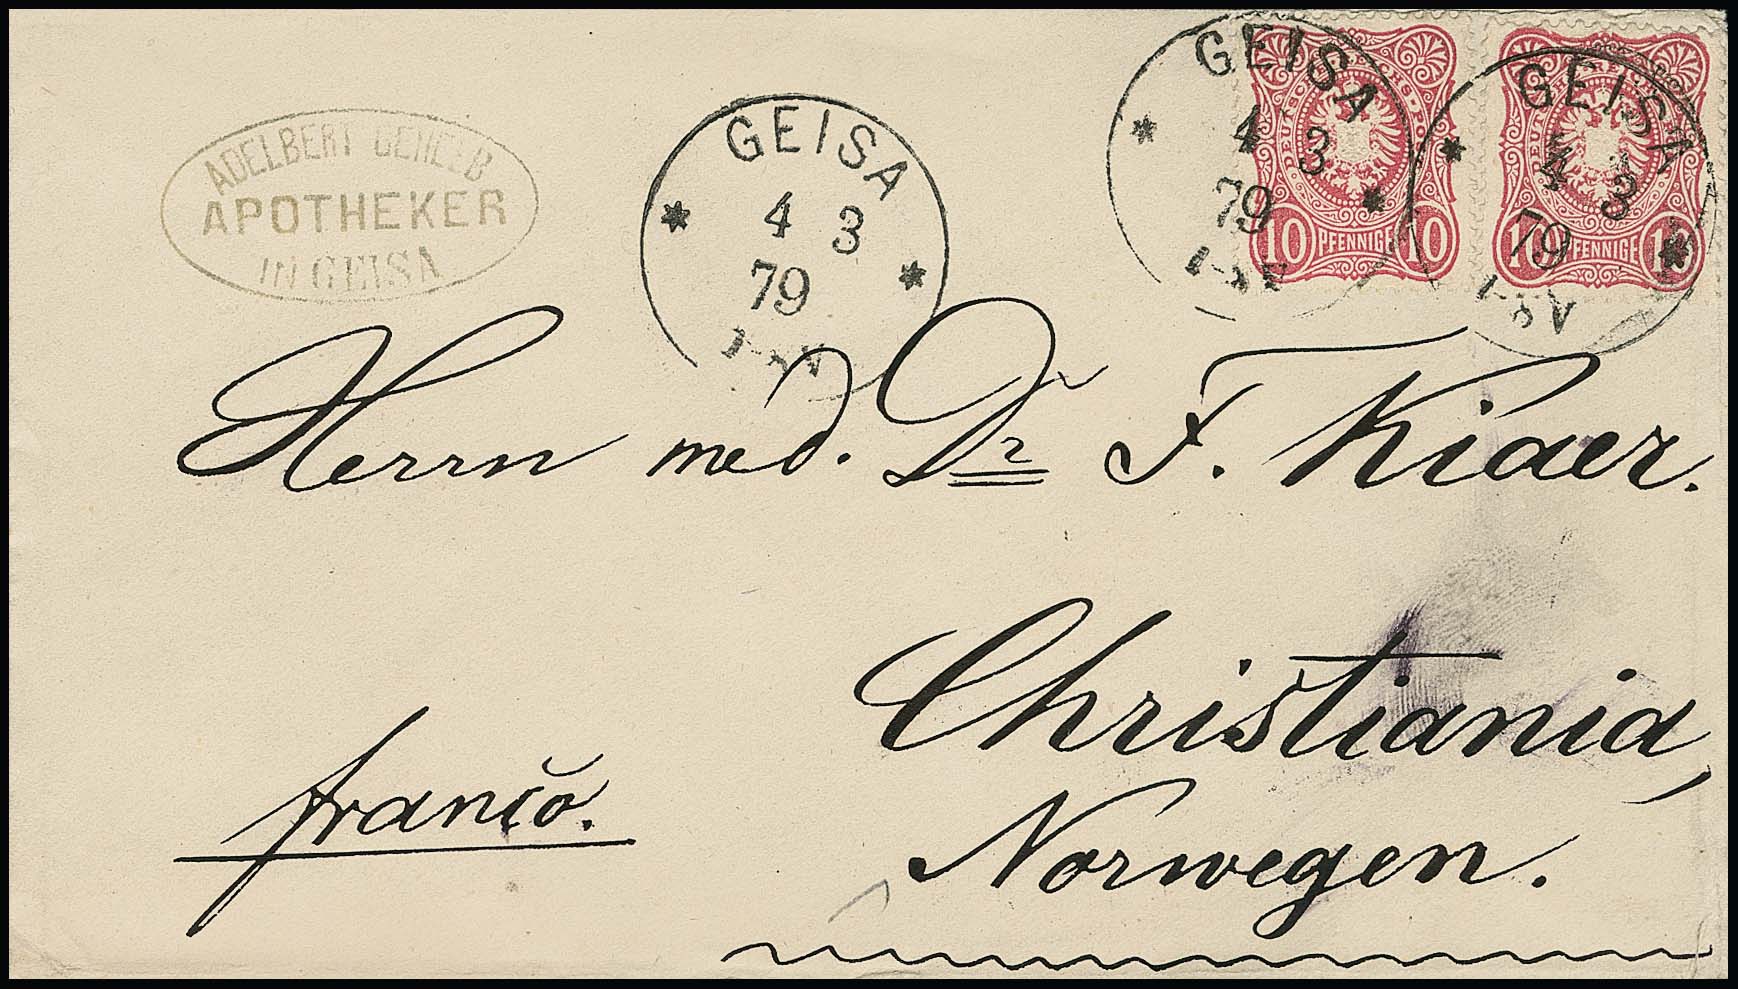 ADELBERT GEHEEB
APOTHEKER
IN GEISA
GEISA
4 3
79
GEISA
4 3
79
10 PFENNIGE 10
GEISA
4 3
79
1-8 V
10 PFENNIGE 10
Herrn med. Dr F. Kiaer.
Christiania,
Norwegen.
franco.